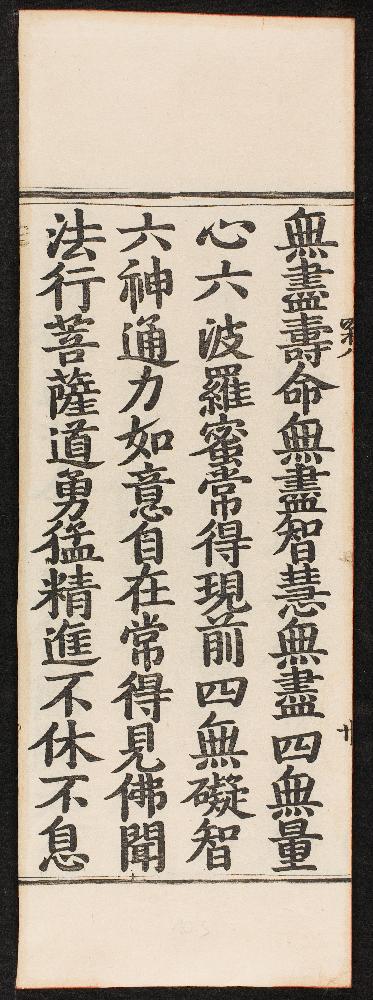 無盡壽命無盡智慧無盡四無量
心六波羅蜜常得現前四無礙智
六神通力如意自在常得見佛聞
法行菩薩道勇猛精進不休不息